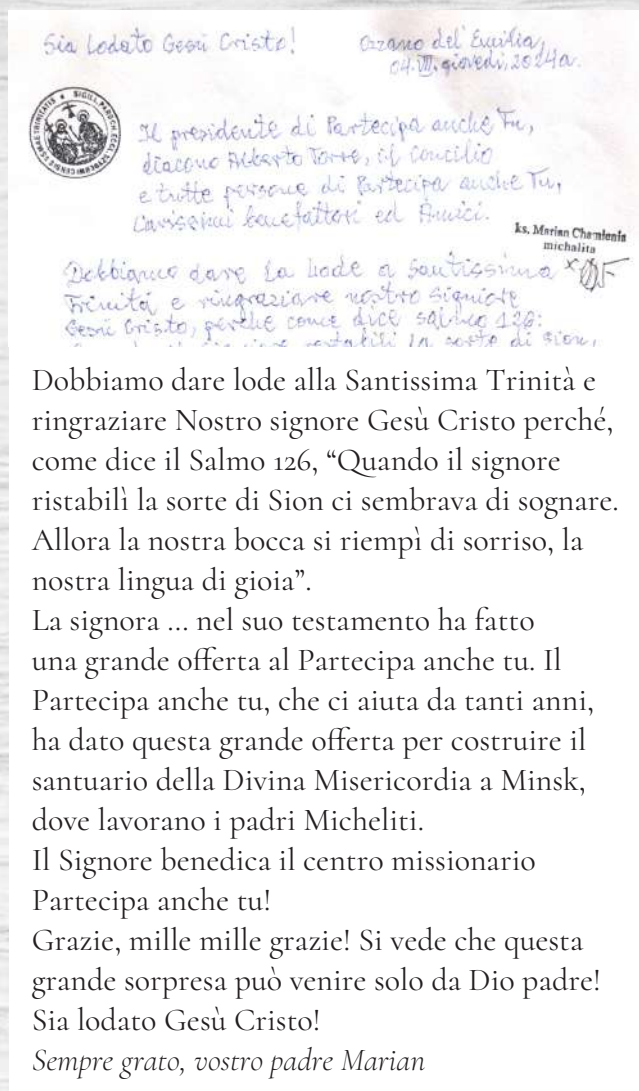 Sia Lodato Gesù Cristo!
Ozzano del' Emilia,
04.VII. giovedì, 2024a.
Il presidente di Partecipa anche Tu,
diacono Alberto Torre, il Concilio
e tutte persone di Partecipa anche Tu,
Carissimi benefattori ed Amici.
ks. Marian
michalita
Dobbiamo dare la Lode a Santissima
Trinità e ringraziare nostro Signiore
Gesù Cristo, perché come dice salmo 126:
la sorte di Sion,
Dobbiamo dare lode alla Santissima Trinità e
ringraziare Nostro signore Gesù Cristo perché,
come dice il Salmo 126, “Quando il signore
ristabilì la sorte di Sion ci sembrava di sognare.
Allora la nostra bocca si riempì di sorriso, la
nostra lingua di gioia”.
La signora ... nel suo testamento ha fatto
una grande offerta al Partecipa anche tu. Il
Partecipa anche tu, che ci aiuta da tanti anni,
ha dato questa grande offerta per costruire il
santuario della Divina Misericordia a Minsk,
dove lavorano i padri Micheliti.
Il Signore benedica il centro missionario
Partecipa anche tu!
Grazie, mille mille grazie! Si vede che questa
grande sorpresa può venire solo da Dio padre!
Sia lodato Gesù Cristo!
Sempre grato, vostro padre Marian